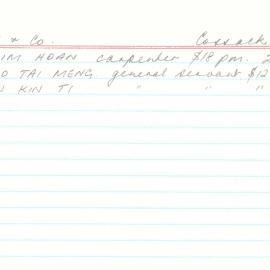 & Co. Cossack
IM HOAN carpenter $18 p.m. 2
O TAI MENG general servant $12
KIN TI " " "